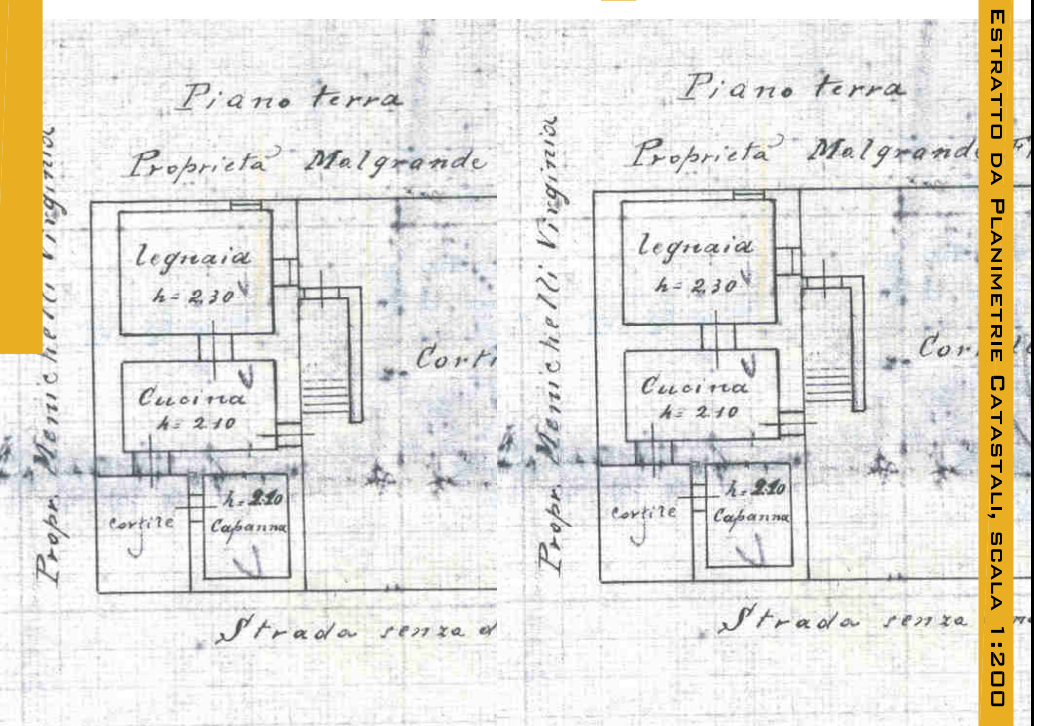 Piano terra
Proprietà Malgrande
Propr. Menichelli Virginia
legnaia
h = 2,30
Cucina
h = 2.10
Cortile
h = 2.10
Capanna
Strada senza
Piano terra
Proprietà Malgrande
Propr. Menichelli Virginia
legnaia
h = 2,30
Cucina
h = 2.10
Cortile
h = 2.10
Capanna
Strada senza
ESTRATTO DA PLANIMETRIE CATASTALI, SCALA 1:200